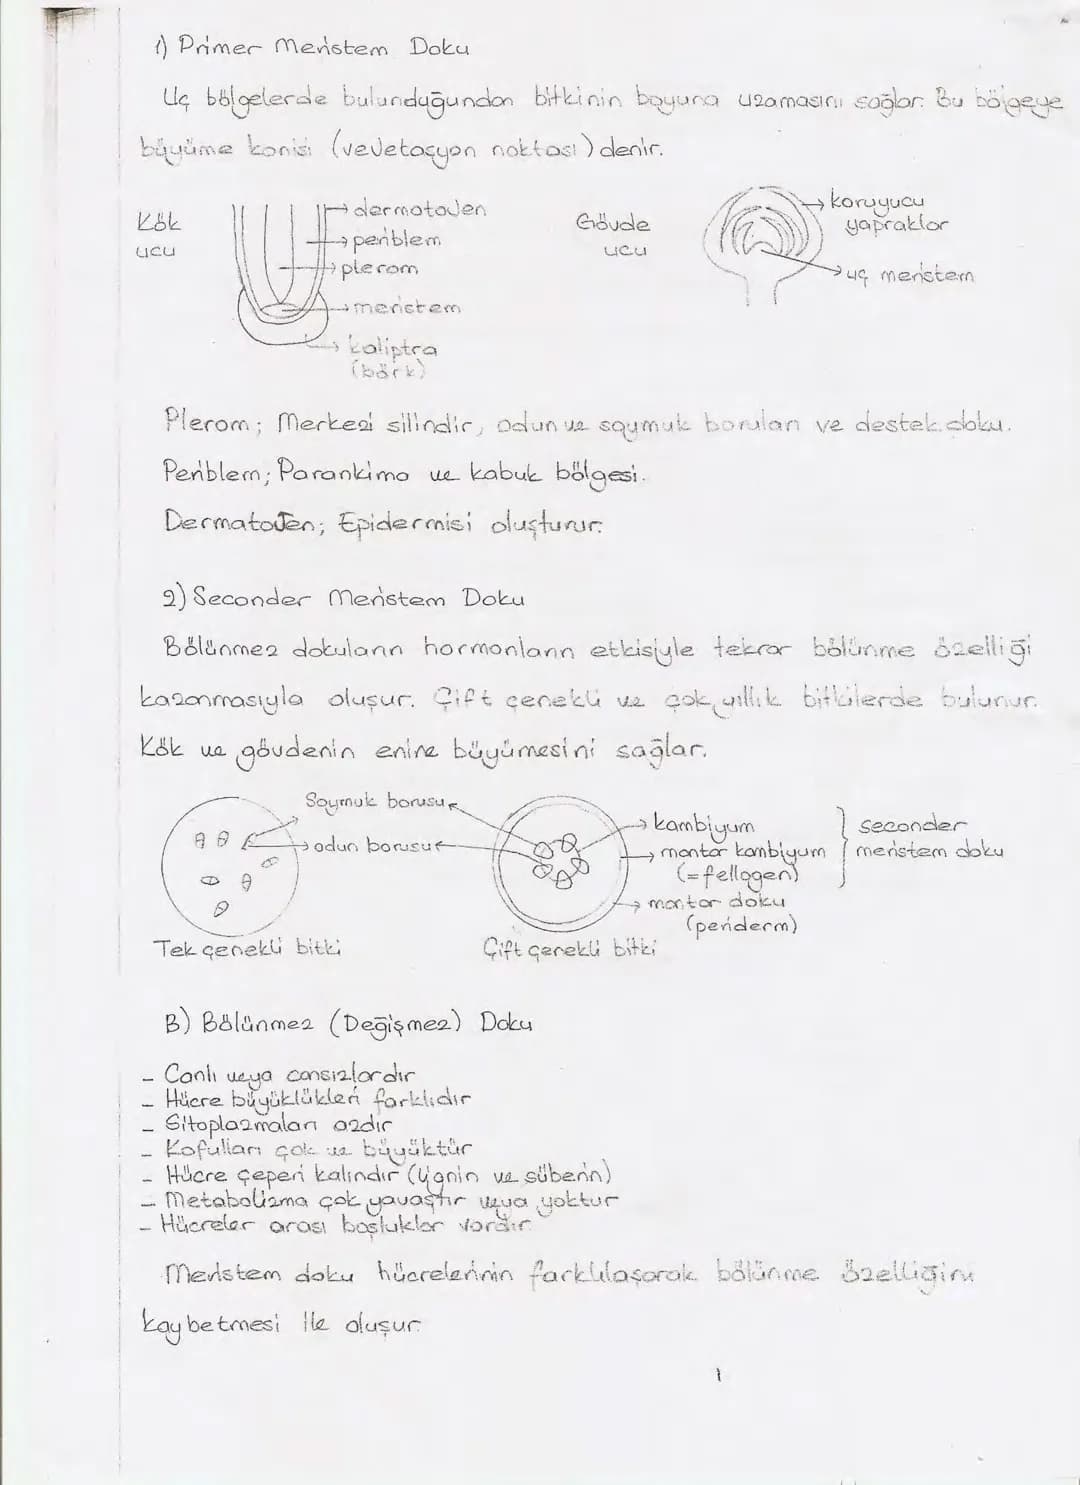 1) Primer Meristem Doku
Uç bölgelerde bulunduğundan bitkinin boyuna uzamasını sağlar. Bu bölgeye
büyüme konisi (vejetasyon noktası) denir.
Kök
ucu
dermatojen
periblem
plerom
meristem
kaliptra
(börk)
Gövde
ucu
koruyucu
yapraklar
uç meristem
Plerom; Merkezi silindir, odun ve soymuk boruları ve destek doku.
Periblem; Parankima ve kabuk bölgesi.
Dermatojen; Epidermisi oluşturur.
2) Seconder Meristem Doku
Bölünmez dokuların hormonların etkisiyle tekrar bölünme özelliği
kazanmasıyla oluşur. Çift çenekli ve çok yıllık bitkilerde bulunur.
Kök ve gövdenin enine büyümesini sağlar.
Soymuk borusu
odun borusu
Tek çenekli bitki
Çift çenekli bitki
kambiyum
mantar kambiyum
(=fellogen)
mantar doku
(periderm)
seconder
meristem doku
B) Bölünmez (Değişmez) Doku
- Canlı veya cansızlardır
- Hücre büyüklükleri farklıdır
- Sitoplazmaları azdır
- Kofulları çok ve büyüktür
- Hücre çeperi kalındır (Lignin ve süberin)
- Metabolizma çok yavaştır veya yoktur
- Hücreler arası boşluklar vardır
Meristem doku hücrelerinin farklılaşarak bölünme özelliğini
kaybetmesi ile oluşur
1